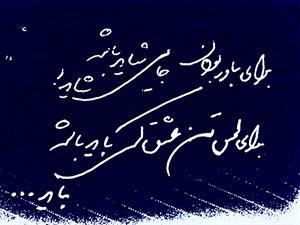 برای باور بودن جایی شاید باشه شاید!
برای لمس تن عشق کسی باید باشه
باید...